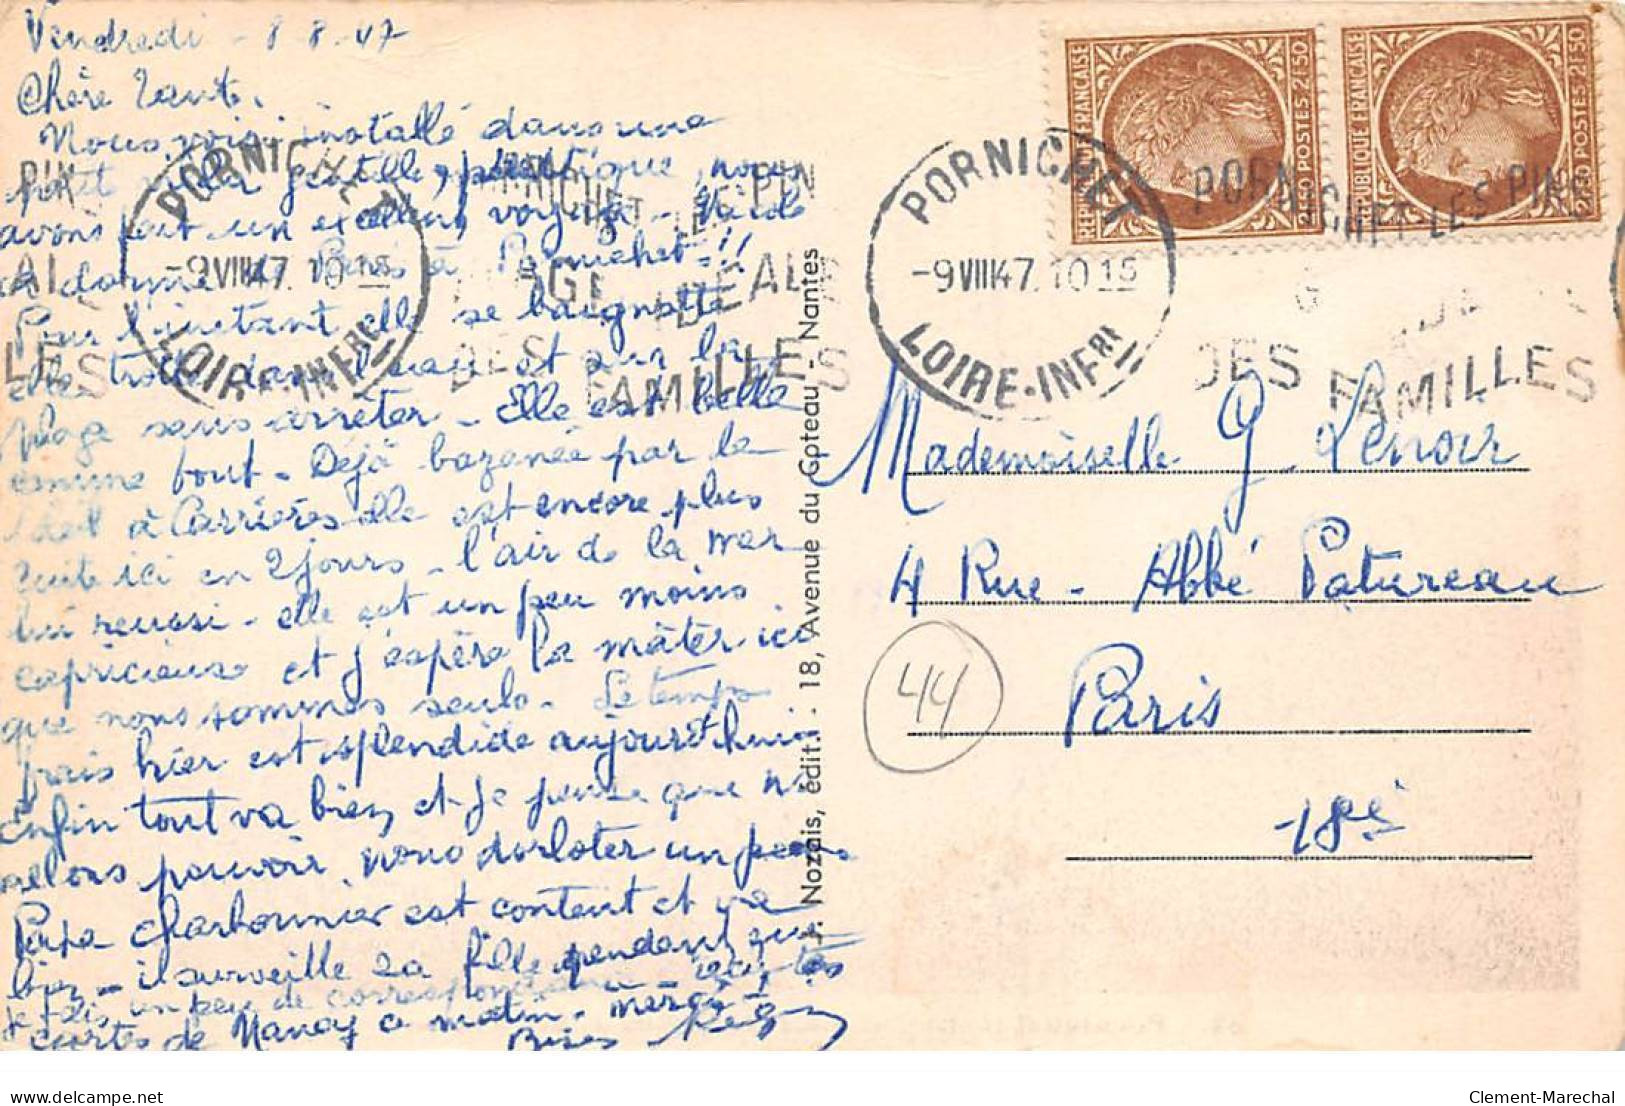 Vendredi - 8-8-47
Chère Tante.
Nous voici installé dans une
petit villa gentille, pratique, nous
avons fait un excellent voyage -
a dormi de Paris à Pornichet !!
Pour l'instant elle se baignotte
elle trotte dans l'eau et sur la
plage sans arrêter - Elle est belle
comme tout - Déjà bazanée par le
soleil à Carrières elle est encore plus
cuite ici en 2 jours - l'air de la mer
lui réussi - elle est un peu moins
capricieuse et j'espère la mâter ici
que nous sommes seuls - Le temps
frais hier est splendide aujourd'hui
Enfin tout va bien et je pense que ns
allons pouvoir nous dorloter un peu
Papa Charbonnier est content et va
bien - il surveille sa fille pendant que
je fais un peu de correspondance - reçu tes
cartes de Nancy ce matin - merci
Bises
PORNICHET
-9 VIII 47 10 15
LOIRE-INFRE
PORNICHET LES PINS
PLAGE IDEALE
DES FAMILLES
J. Nozais, édit. - 18, Avenue du Gpteau - Nantes
PORNICHET
-9 VIII 47 10 15
LOIRE-INFRE
PORNICHET LES PINS
DES FAMILLES
REPUBLIQUE FRANÇAISE
2f.50 POSTES 2f.50
REPUBLIQUE FRANÇAISE
2f.50 POSTES 2f.50
Mademoiselle G. Lenoir
4 Rue - Abbé Patureau
Paris
-18è
44
Clement-Marechal